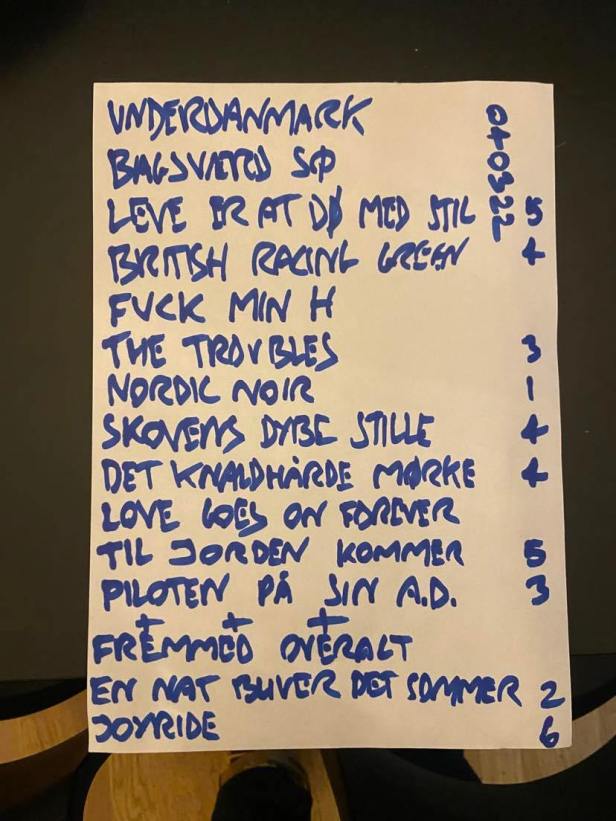 UNDERDANMARK
BAGSVÆRD SØ
LEVE ER AT DØ MED STIL 5
BRITISH RACING GREEN 4
FUCK MIN H
THE TROUBLES 3
NORDIC NOIR 1
SKOVENS DYBE STILLE 4
DET KNALDHÅRDE MØRKE 4
LOVE GOES ON FOREVER
TIL JORDEN KOMMER 5
PILOTEN PÅ SIN A.D. 3
+ + +
FREMMED OVERALT
EN NAT BLIVER DET SOMMER 2
JOYRIDE 6
040922